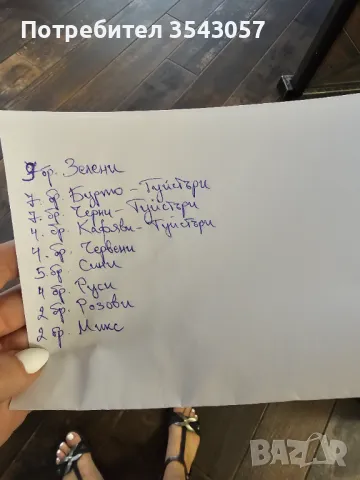 Потребител 3543057
9 бр. Зелени
7. бр. Бурто - Туйстъри
7. бр. Черни - Туйстъри
4. бр. Кафяви - Туйстъри
4. бр. Червени
5. бр. Сини
4 бр. Руси
2 бр. Розови
2 бр. Микс
BAZAR